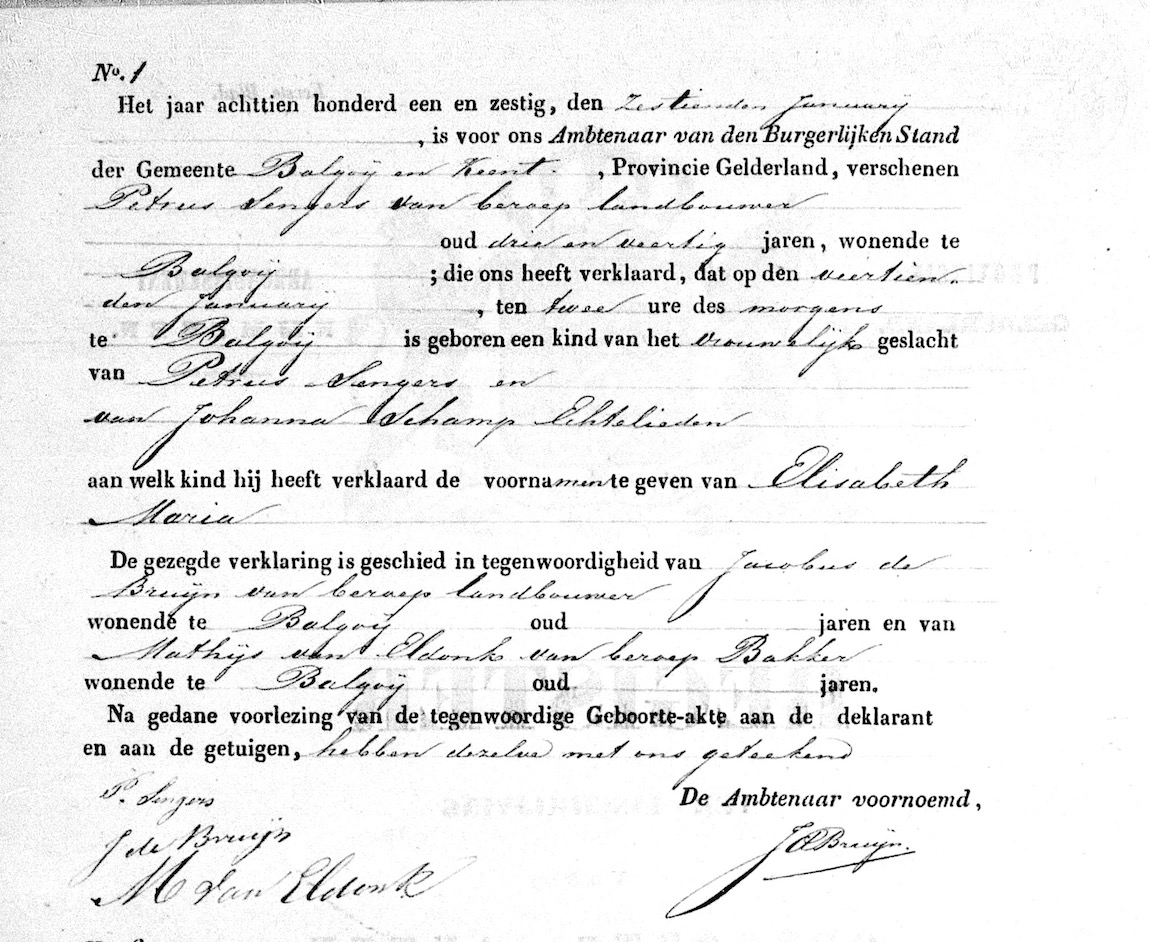 No. 1
Het jaar achttien honderd een en zestig, den zestienden Januarij
, is voor ons Ambtenaar van den Burgerlijken Stand
der Gemeente Balgoij en Keent. , Provincie Gelderland, verschenen
Petrus Sengers van beroep landbouwer
oud drie en veertig jaren, wonende te
Balgoij ; die ons heeft verklaard, dat op den viertien-
den Januarij , ten twee ure des morgens
te Balgoij is geboren een kind van het vrouwelijk geslacht
van Petrus Sengers en
van Johanna Schamp Echtelieden
aan welk kind hij heeft verklaard de voornamen te geven van Elisabeth
Maria
De gezegde verklaring is geschied in tegenwoordigheid van Jacobus de
Bruijn van beroep landbouwer
wonende te Balgoij oud jaren en van
Mathijs van Eldonk van beroep Bakker
wonende te Balgoij oud jaren.
Na gedane voorlezing van de tegenwoordige Geboorte-akte aan de deklarant
en aan de getuigen, hebben dezelve met ons geteekend
P. Sengers
De Ambtenaar voornoemd,
J de Bruijn
M van Eldonk
Bruijn.